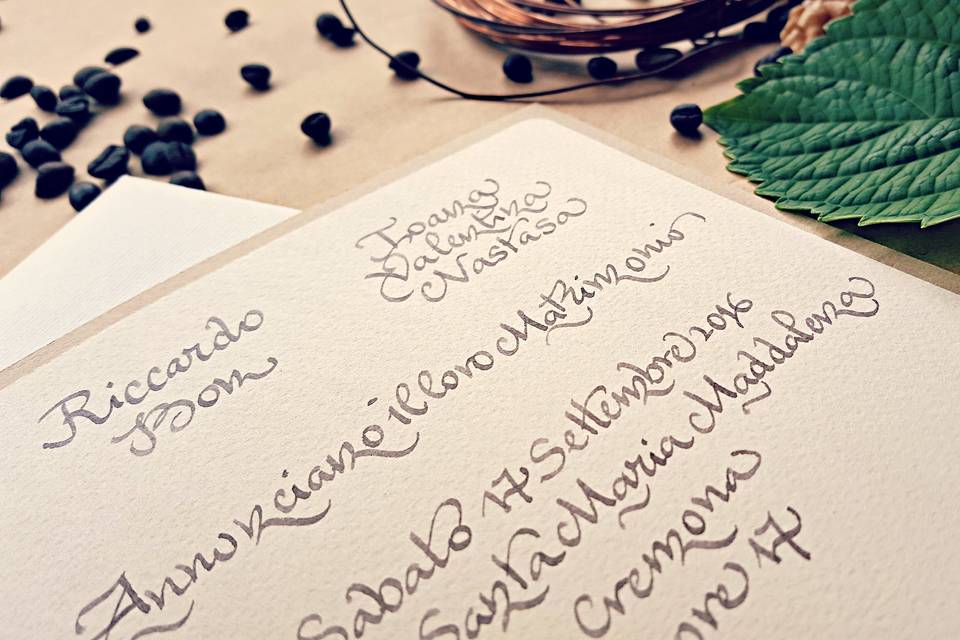 Riccardo
Bonz
Ioana
Valentina
Nastasa
Annunciano il loro Matrimonio
Sabato 17 Settembre 2016
Santa Maria Maddalena
Cremona
ore 17